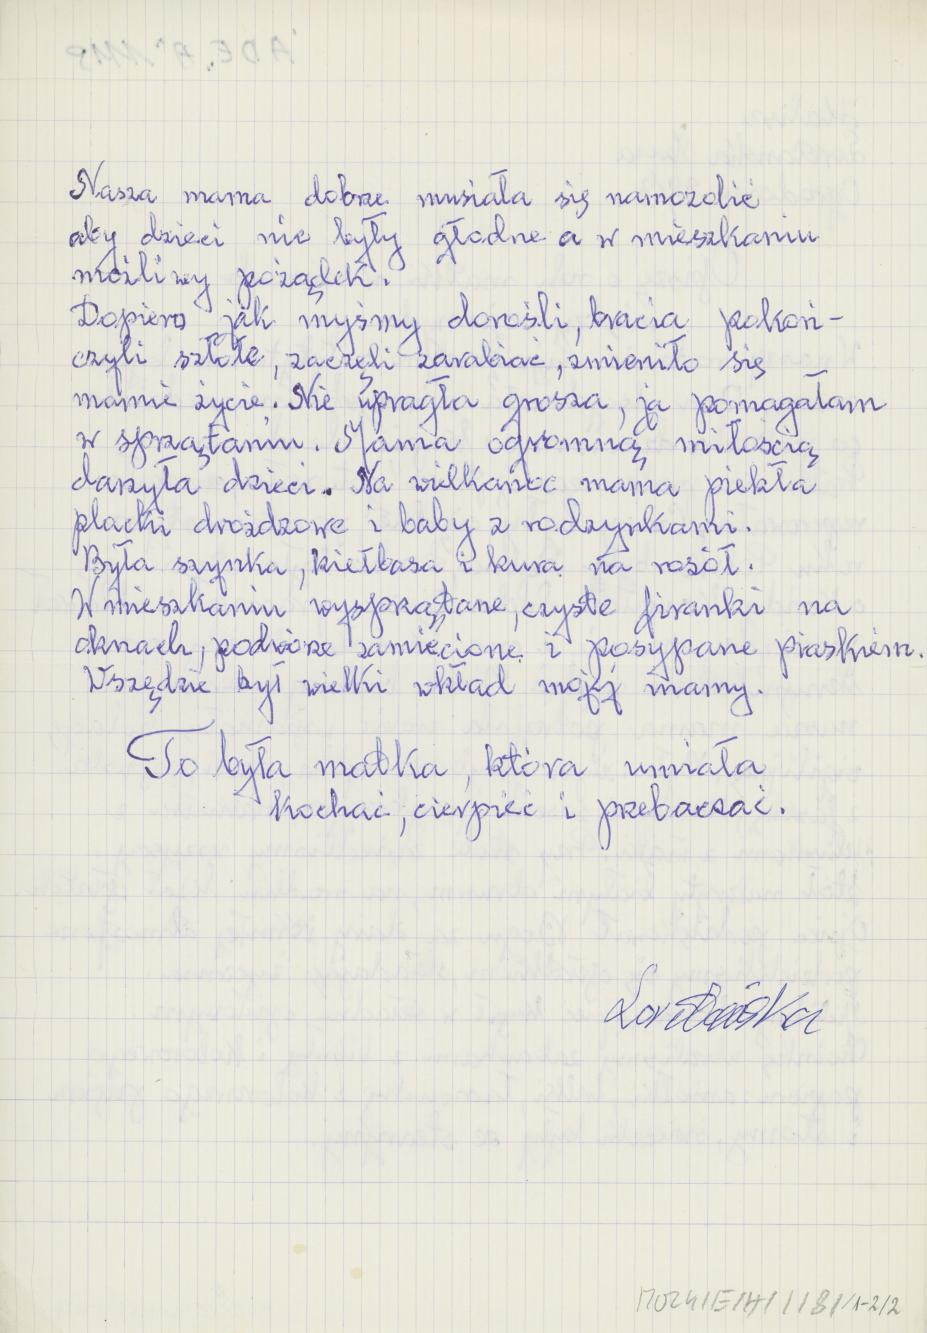 Nasza mama dobrze musiała się namozolić
aby dzieci nie były głodne a w mieszkaniu
możliwy pożądek.
Dopiero jak myśmy dorośli, bracia pokoń-
czyli szkołe, zaczęli zarabiać, zmieniło się
mamie życie. Nie upragła grosza, ja pomagałam
w sprzątaniu. Mama ogromną miłością
darzyła dzieci. Na wielkanoc mama piekła
placki drożdzowe i baby z rodzynkami.
Była szynka, kiełbasa i kura na rosół.
W mieszkaniu wysprzątane, czyste firanki na
oknach, podwórze zamiecione i posypane piaskiem.
Wszędzie był wielki wkład mojej mamy.
To była matka, która umiała
kochać, cierpieć i przebaczać.